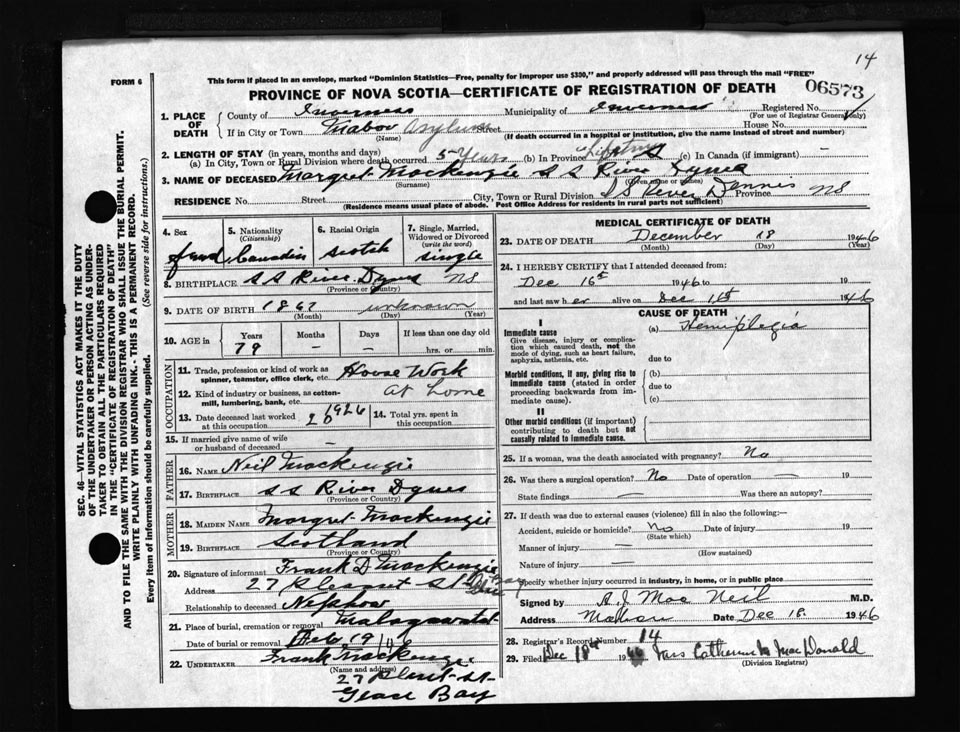 14
FORM 6
This form if placed in an envelope, marked "Dominion Statistics—Free, penalty for improper use $300," and properly addressed will pass through the mail "FREE"
PROVINCE OF NOVA SCOTIA—CERTIFICATE OF REGISTRATION OF DEATH
06573
1. PLACE OF DEATH
County of Inverness Municipality of Inverness Registered No.
(For use of Registrar General only)
If in City or Town Mabou Asylum Street House No.
(Name) (If death occurred in a hospital or institution, give the name instead of street and number)
2. LENGTH OF STAY (in years, months and days)
(a) In City, Town or Rural Division where death occurred 5 Years (b) In Province Lifetime (c) In Canada (if immigrant) —
3. NAME OF DECEASED Margret Mackenzie S S River Dynes
(Surname) (Given name or names)
RESIDENCE No. Street City, Town or Rural Division S S River Dennis Province NS
(Residence means usual place of abode. Post Office Address for residents in rural parts not sufficient)
4. Sex
5. Nationality
(Citizenship)
6. Racial Origin
scotch
7. Single, Married, Widowed or Divorced
(write the word)
single
8. BIRTHPLACE S S River Dynes NS
(Province or Country)
9. DATE OF BIRTH 1867 unknown
(Month) (Day) (Year)
10. AGE in Years Months Days If less than one day old
79 — — hrs. or min.
OCCUPATION
11. Trade, profession or kind of work as spinner, teamster, office clerk, etc. House Work
12. Kind of industry or business, as cotton-mill, lumbering, bank, etc. at home
13. Date deceased last worked at this occupation 1926
14. Total yrs. spent in this occupation
20
15. If married give name of wife or husband of deceased —
FATHER
16. NAME Neil Mackenzie
17. BIRTHPLACE S S River Dynes
(Province or Country)
MOTHER
18. MAIDEN NAME Margret Mackenzie
19. BIRTHPLACE Scotland
(Province or Country)
20. Signature of informant Frank D Mackenzie
Address 27 Pleasant St Glace Bay
Relationship to deceased Nephew
21. Place of burial, cremation or removal Malagawatch
Date of burial or removal
22. UNDERTAKER Frank Mackenzie
(Name and address)
27 Plsnt St
Glace Bay
MEDICAL CERTIFICATE OF DEATH
23. DATE OF DEATH December 18 1946
(Month) (Day) (Year)
24. I HEREBY CERTIFY that I attended deceased from:
Dec 16th 1946 to 19
and last saw her alive on Dec 16th 1946
CAUSE OF DEATH
I
Immediate cause
(a) Hemiplegia
Give disease, injury or complication which caused death, not the mode of dying, such as heart failure, asphyxia, asthenia, etc.
due to
Morbid conditions, if any, giving rise to immediate cause (stated in order proceeding backwards from immediate cause).
(b)
due to
(c)
II
Other morbid conditions (if important) contributing to death but not causally related to immediate cause.
25. If a woman, was the death associated with pregnancy? No
26. Was there a surgical operation? No Date of operation — 19
State findings — Was there an autopsy?
27. If death was due to external causes (violence) fill in also the following:—
Accident, suicide or homicide? No Date of injury 19
(State which)
Manner of injury —
(How sustained)
Nature of injury —
Specify whether injury occurred in industry, in home, or in public place
Signed by A. J. Mac Neil M.D.
Address Mabou Date Dec 18. 1946
28. Registrar's Record Number 14
29. Filed Dec 18th 1946 Mrs Catherine M MacDonald
(Division Registrar)
SEC. 46—VITAL STATISTICS ACT MAKES IT THE DUTY
OF THE UNDERTAKER OR PERSON ACTING AS UNDER-
TAKER TO OBTAIN ALL THE PARTICULARS REQUIRED
IN THE "CERTIFICATE OF REGISTRATION OF DEATH"
AND TO FILE THE SAME WITH THE DIVISION REGISTRAR WHO SHALL ISSUE THE BURIAL PERMIT.
WRITE PLAINLY WITH UNFADING INK.—THIS IS A PERMANENT RECORD.
Every item of information should be carefully supplied. (See reverse side for instructions.)